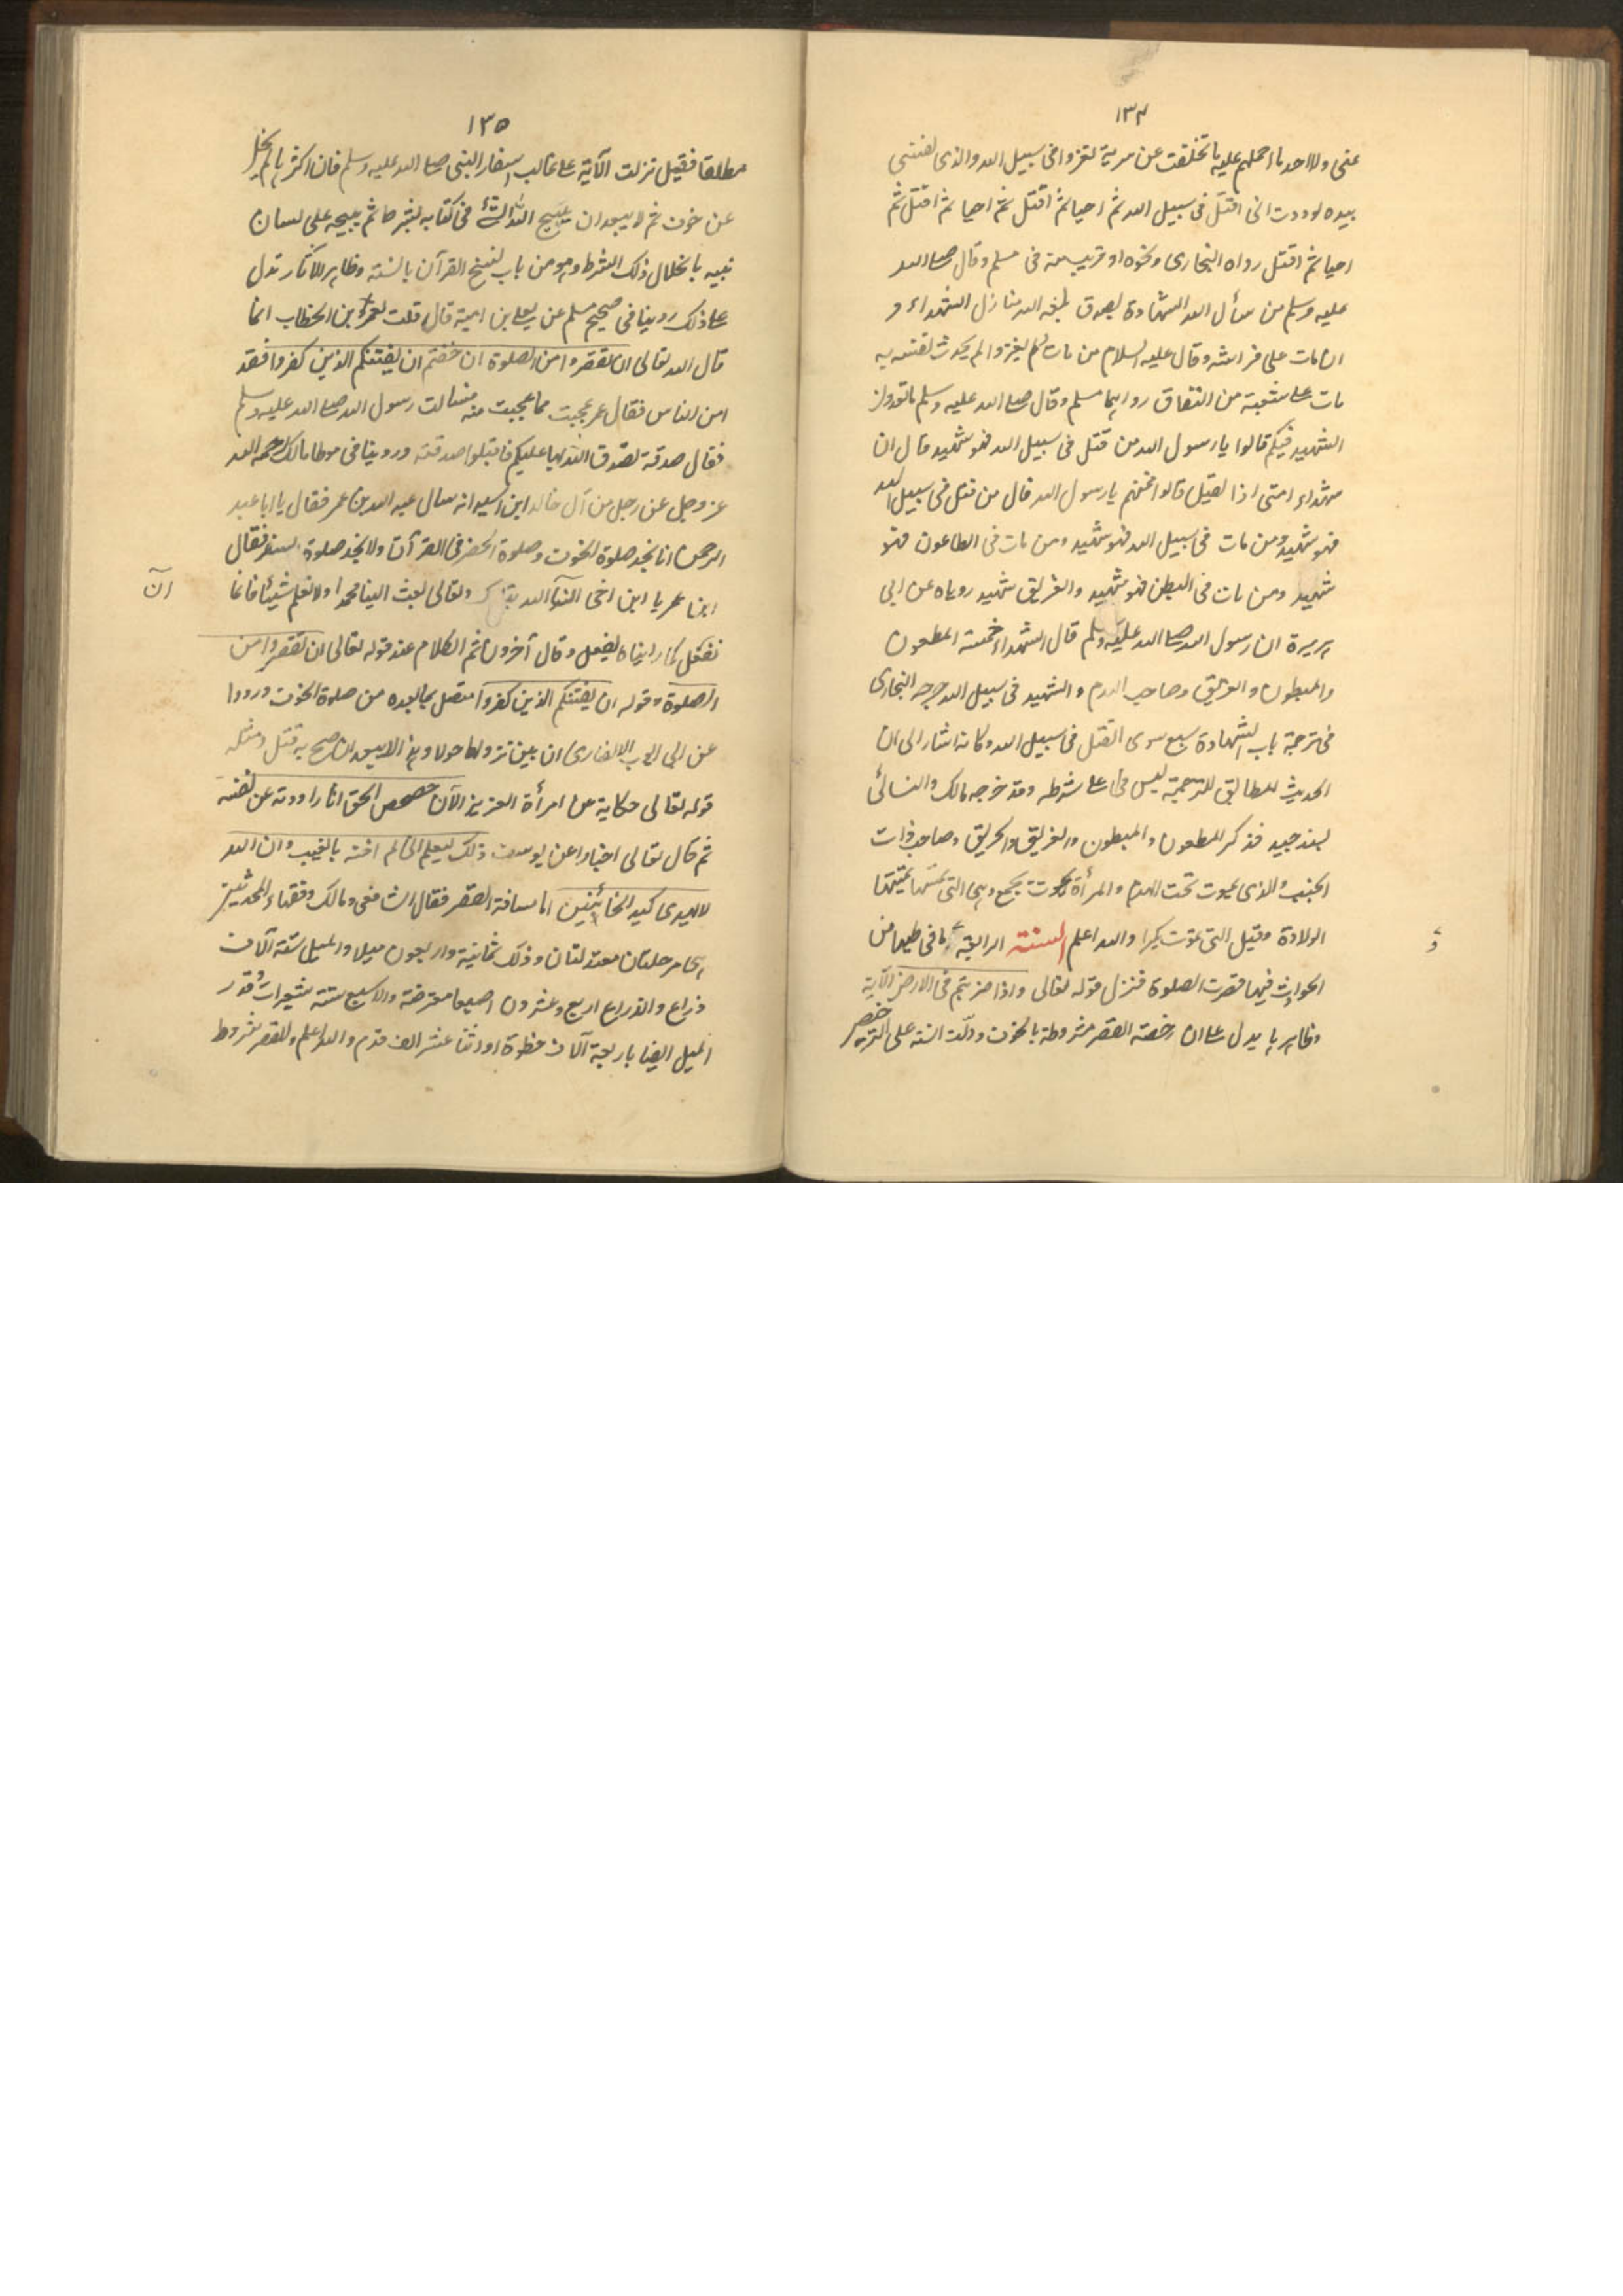 ١٣٤
عنى ولا احد ما احملهم عليه ما تخلفت عن سرية تغزوا فى سبيل الله والذى نفسى
بيده لوددت انى اقتل فى سبيل الله ثم احيا ثم اقتل ثم احيا ثم اقتل ثم
احيا ثم اقتل رواه البخارى ونحوه او قريب منه فى مسلم وقال صلى الله
عليه وسلم من سأل الله الشهادة بصدق بلغه الله منازل الشهداء و
ان مات على فراشه وقال عليه السلام من مات ولم يغز ولم يحدث نفسه به
مات على شعبة من النفاق رواهما مسلم وقال صلى الله عليه وسلم ما تعدون
الشهيد فيكم قالوا يا رسول الله من قتل فى سبيل الله فهو شهيد قال ان
شهداء امتى اذا لقليل قالوا فمن هم يا رسول الله قال من قتل فى سبيل الله
فهو شهيد ومن مات فى سبيل الله فهو شهيد ومن مات فى الطاعون فهو
شهيد ومن مات فى البطن فهو شهيد والغريق شهيد روياه عن ابى
هريرة ان رسول الله صلى الله عليه وسلم قال الشهداء خمسة المطعون
والمبطون والغريق وصاحب الهدم والشهيد فى سبيل الله خرجه البخارى
فى ترجمة باب الشهادة سبع سوى القتل فى سبيل الله وكانه اشار الى ان
الحديث المطابق للترجمة ليس على شرطه وقد خرجه مالك والنسائى
بسند جيد فذكر المطعون والمبطون والغريق والحريق وصاحب ذات
الجنب والذى يموت تحت الهدم والمرأة تموت بجمع وهى التى
الولادة وقيل التى تموت بكرا والله اعلم السنة الرابعة وما فى طيها من
الحوادث فيها قصرت الصلوة فنزل قوله تعالى واذا ضربتم فى الارض الآية
وظاهرها يدل على ان رخصة القصر مشروطة بالخوف ودلت السنة على الترخص
١٣٥
مطلقا فقيل نزلت الآية على غالب اسفار النبى صلى الله عليه وسلم فان اكثرها لم يخل
عن خوف ثم لا يبعد ان يبيح الله الشئ فى كتابه بشرط ثم يبيحه على لسان
نبيه بانحلال ذلك الشرط وهو من باب نسخ القرآن بالسنة وظاهر الآثار تدل
على ذلك روينا فى صحيح مسلم عن يعلى بن امية قال قلت لعمر بن الخطاب انما
قال الله تعالى ان تقصروا من الصلوة ان خفتم ان يفتنكم الذين كفروا فقد
امن الناس فقال عمر عجبت مما عجبت منه فسالت رسول الله صلى الله عليه وسلم
فقال صدقة تصدق الله بها عليكم فاقبلوا صدقته وروينا فى موطا مالك رحمه الله
عز وجل عن رجل من آل خالد ابن اسيد انه سال عبد الله بن عمر فقال يا ابا عبد
الرحمن انا نجد صلوة الخوف وصلوة الحضر فى القرآن ولا نجد صلوة السفر فقال
ابن عمر يا ابن اخى الله تبارك وتعالى بعث الينا محمدا ولا نعلم شيئا فانما
ان
نفعل كما رايناه يفعل وقال آخرون ثم الكلام عند قوله تعالى ان تقصروا من
الصلوة وقوله ان يفتنكم الذين كفروا متصل بما بعده من صلوة الخوف ورووا
عن ابى ايوب الانصارى ان بين نزولهما حولا وهذا لا يبعد ان صح به نقل ومثله
قوله تعالى حكاية عن امرأة العزيز الآن حصحص الحق انا راودته عن نفسه
ثم قال تعالى اخبارا عن يوسف ذلك ليعلم انى لم اخنه بالغيب وان الله
لا يهدى كيد الخائنين اما مسافة القصر فقال الشافعى ومالك وفقهاء المحدثين
هى مرحلتان معتدلتان وذلك ثمانية واربعون ميلا والميل ستة آلاف
ذراع والذراع اربع وعشرون اصبعا معترضة والاصبع ستة شعيرات وقدر
الميل ايضا باربعة آلاف خطوة او اثنا عشر الف قدم والله اعلم وللقصر شروط